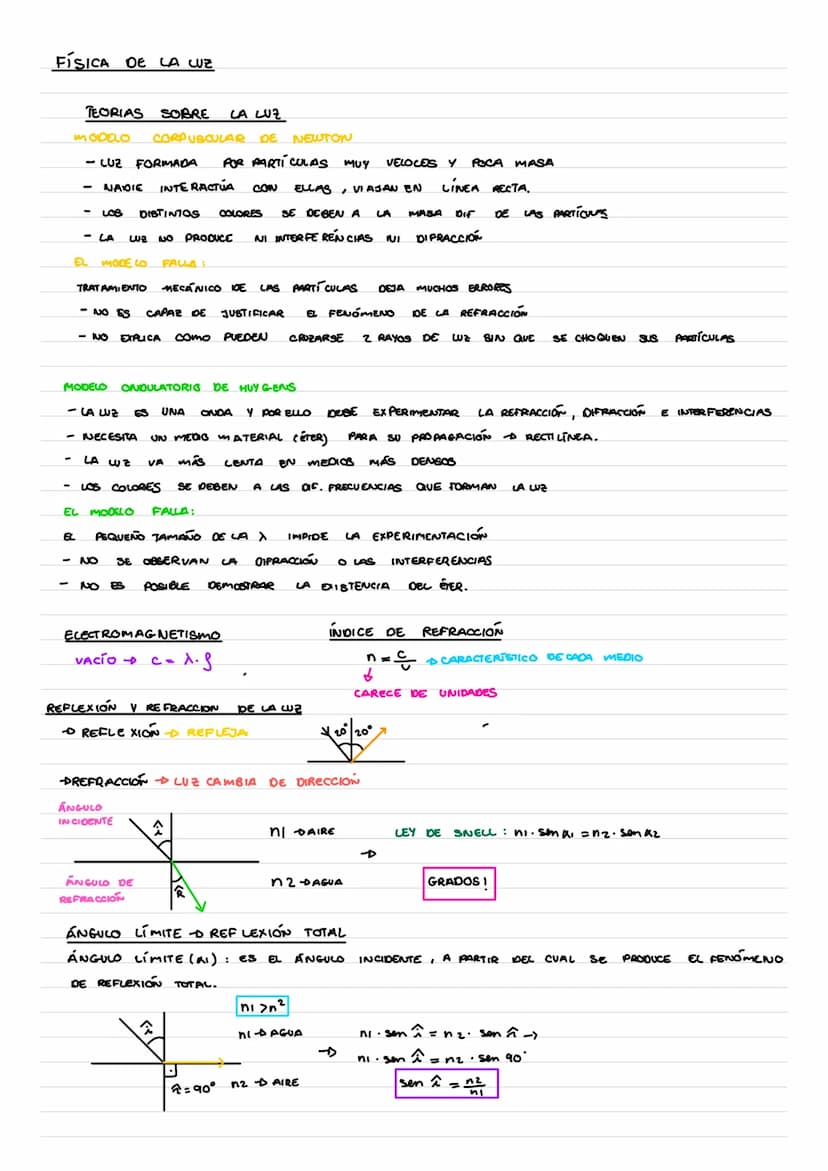 FÍSICA DE LA LUZ
TEORIAS SOBRE LA LUZ
MODELO CORPUSCULAR DE NEWTON
- LUZ FORMADA POR PARTÍCULAS MUY VELOCES Y POCA MASA
- NADIE INTERACTÚA CON ELLAS, VIAJAN EN LÍNEA RECTA.
- LOS DISTINTOS COLORES SE DEBEN A LA MASA DIF DE LAS PARTÍCULAS
- LA LUZ NO PRODUCE NI INTERFERENCIAS NI DIFRACCIÓN
EL MODELO FALLA:
TRATAMIENTO MECÁNICO DE LAS PARTÍCULAS DEJA MUCHOS ERRORES
- NO ES CAPAZ DE JUSTIFICAR EL FENÓMENO DE LA REFRACCIÓN
- NO EXPLICA COMO PUEDEN CRUZARSE 2 RAYOS DE LUZ SIN QUE SE CHOQUEN SUS PARTÍCULAS
MODELO ONDULATORIO DE HUYGENS
- LA LUZ ES UNA ONDA Y POR ELLO DEBE EXPERIMENTAR LA REFRACCIÓN, DIFRACCIÓN E INTERFERENCIAS
- NECESITA UN MEDIO MATERIAL (ÉTER) PARA SU PROPAGACIÓN → RECTILÍNEA.
- LA LUZ VA MÁS LENTA EN MEDIOS MÁS DENSOS
- LOS COLORES SE DEBEN A LAS DIF. FRECUENCIAS QUE FORMAN LA LUZ
EL MODELO FALLA:
EL PEQUEÑO TAMAÑO DE LA λ IMPIDE LA EXPERIMENTACIÓN
- NO SE OBSERVAN LA DIFRACCIÓN O LAS INTERFERENCIAS
- NO ES POSIBLE DEMOSTRAR LA EXISTENCIA DEL ÉTER.
ELECTROMAGNETISMO
VACÍO → c = λ·f
ÍNDICE DE REFRACCIÓN
n = c/v → CARACTERÍSTICO DE CADA MEDIO
CARECE DE UNIDADES
REFLEXIÓN Y REFRACCION DE LA LUZ
→ REFLEXIÓN → REFLEJA
20° 20°
→ REFRACCIÓN → LUZ CAMBIA DE DIRECCIÓN
ÁNGULO
INCIDENTE
î
n1 → AIRE
→
LEY DE SNELL: n1·sen α1 = n2·sen α2
ÁNGULO DE
REFRACCIÓN
R̂
n2 → AGUA
GRADOS!
ÁNGULO LÍMITE → REFLEXIÓN TOTAL
ÁNGULO LÍMITE (α1): ES EL ÁNGULO INCIDENTE, A PARTIR DEL CUAL SE PRODUCE EL FENÓMENO
DE REFLEXIÓN TOTAL.
n1 > n2
î
n1 → AGUA
r̂ = 90°
n2 → AIRE
→
n1 · sen î = n2 · sen r̂ →
n1 · sen î = n2 · sen 90°
sen î = n2/n1